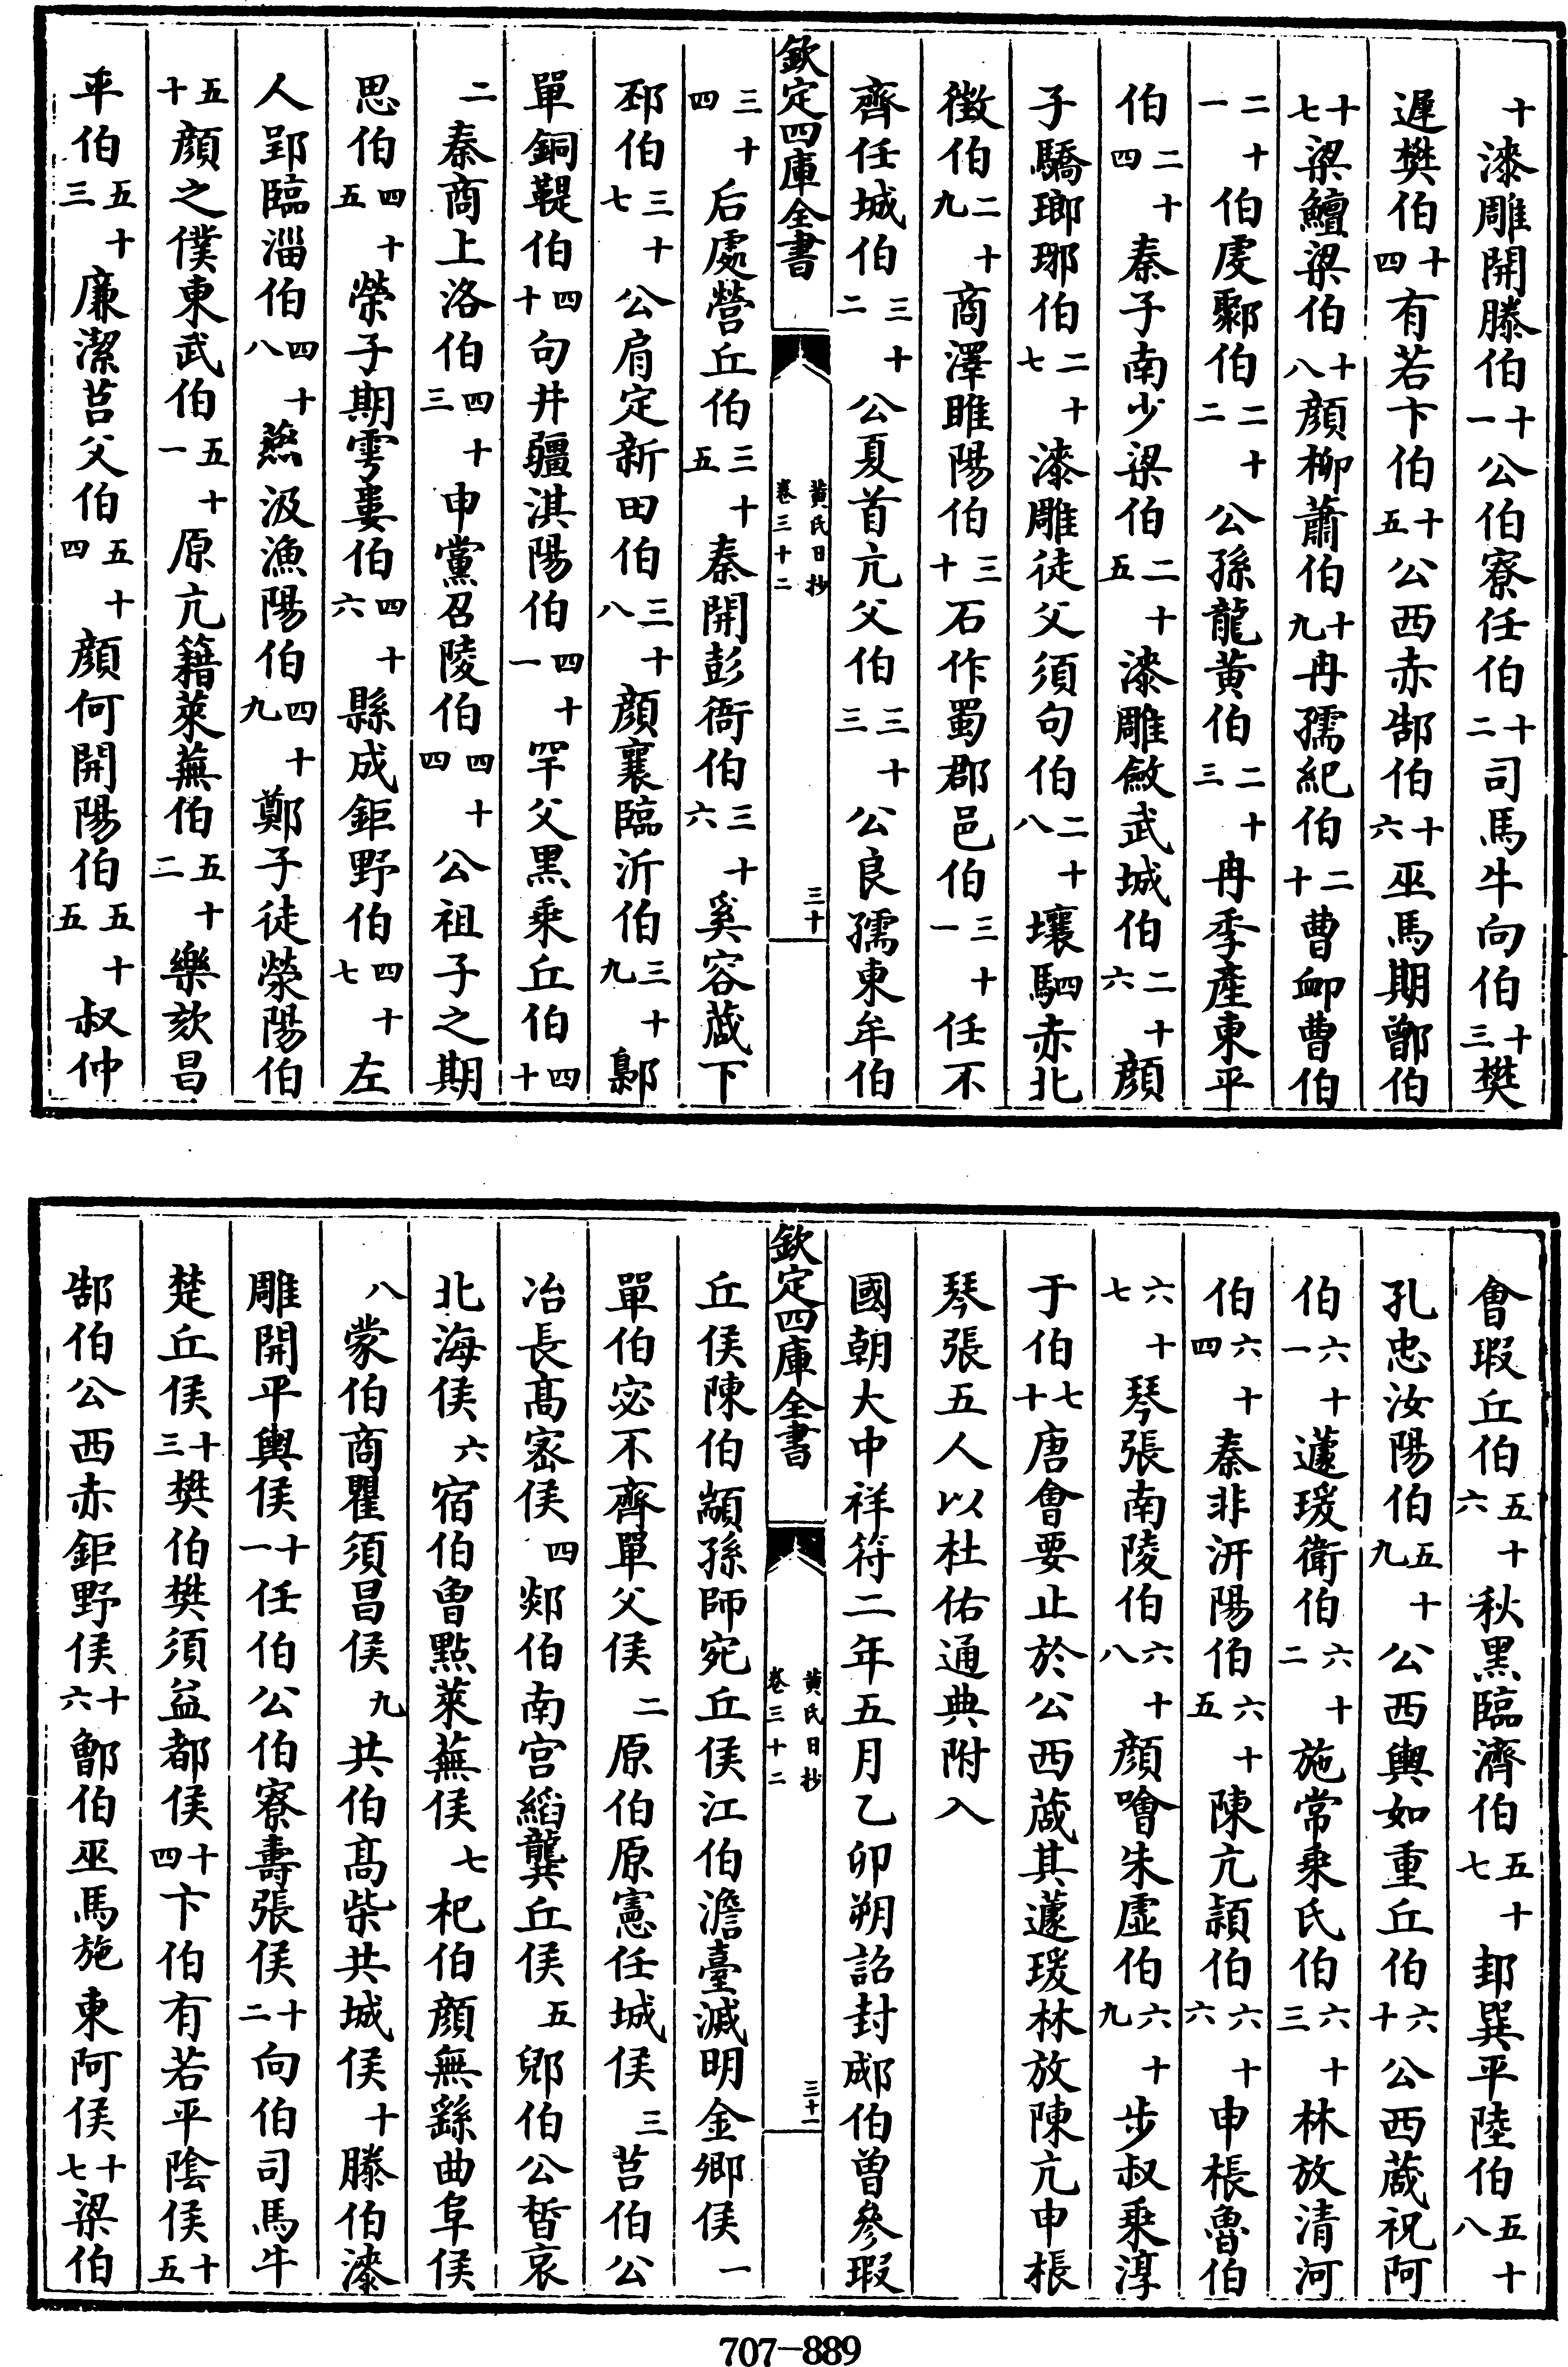 十漆雕開滕伯十一公伯寮任伯十二司馬牛向伯十三樊
遲樊伯十四有若卞伯十五公西赤郜伯十六巫馬期鄫伯
十七梁鱣梁伯十八顔栁蕭伯十九冉孺紀伯二十曹䘏曹伯
二十一伯虔鄹伯二十二公孫龍黄伯二十三冉季產東平
伯二十四秦子南少梁伯二十五漆雕斂武城伯二十六顔
子驕瑯琊伯二十七漆雕徒父須句伯二十八壤駟赤北
徴伯二十九商澤睢陽伯三十石作蜀郡邑伯三十一任不
齊任城伯三十二公夏首亢父伯三十三公良孺東牟伯
欽定四庫全書
黄氏日抄
卷三十二
三十
三十四后處營丘伯三十五秦開彭衙伯三十六奚容蒧下
邳伯三十七公肩定新田伯三十八顔襄臨沂伯三十九鄡
單銅鞮伯四十句井疆淇陽伯四十一罕父黒乘丘伯四十
二秦商上洛伯四十三申黨召陵伯四十四公祖子之期
思伯四十五榮子期雩婁伯四十六縣成鉅野伯四十七左
人郢臨淄伯四十八燕汲漁陽伯四十九鄭子徒滎陽伯
五十顔之僕東武伯五十一原亢籍萊蕪伯五十二樂欬昌
平伯五十三廉潔莒父伯五十四顔何開陽伯五十五叔仲
㑹瑕丘伯五十六秋黒臨濟伯五十七邽巽平陸伯五十八
孔忠汝陽伯五十九公西輿如重丘伯六十公西蒧祝阿
伯六十一蘧瑗衛伯六十二施常乘氏伯六十三林放清河
伯六十四秦非汧陽伯六十五陳亢潁伯六十六申棖魯伯
六十七琴張南陵伯六十八顔噲朱虚伯六十九步叔乗淳
于伯七十唐㑹要止於公西蒧其蘧瑗林放陳亢申棖
琴張五人以杜佑通典附入
國朝大中祥符二年五月乙卯朔詔封郕伯曽參瑕
欽定四庫全書
黄氏日抄
卷三十二
三十一
丘侯陳伯顓孫師宛丘侯江伯澹臺滅明金鄉侯一
單伯宓不齊單父侯二原伯原憲任城侯三莒伯公
冶長髙宻侯四郯伯南宫縚龔丘侯五郳伯公晳哀
北海侯六宿伯曽㸃萊蕪侯七杞伯顔無繇曲阜侯
八蒙伯商瞿須昌侯九共伯髙柴共城侯十滕伯漆
雕開平輿侯十一任伯公伯寮壽張侯十二向伯司馬牛
楚丘侯十三樊伯樊須益都侯十四卞伯有若平隂侯十五
郜伯公西赤鉅野侯十六鄫伯巫馬施東阿侯十七梁伯
707-889